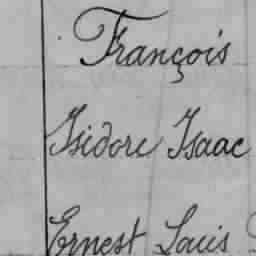 François
Isidore Isaac
Ernest Louis